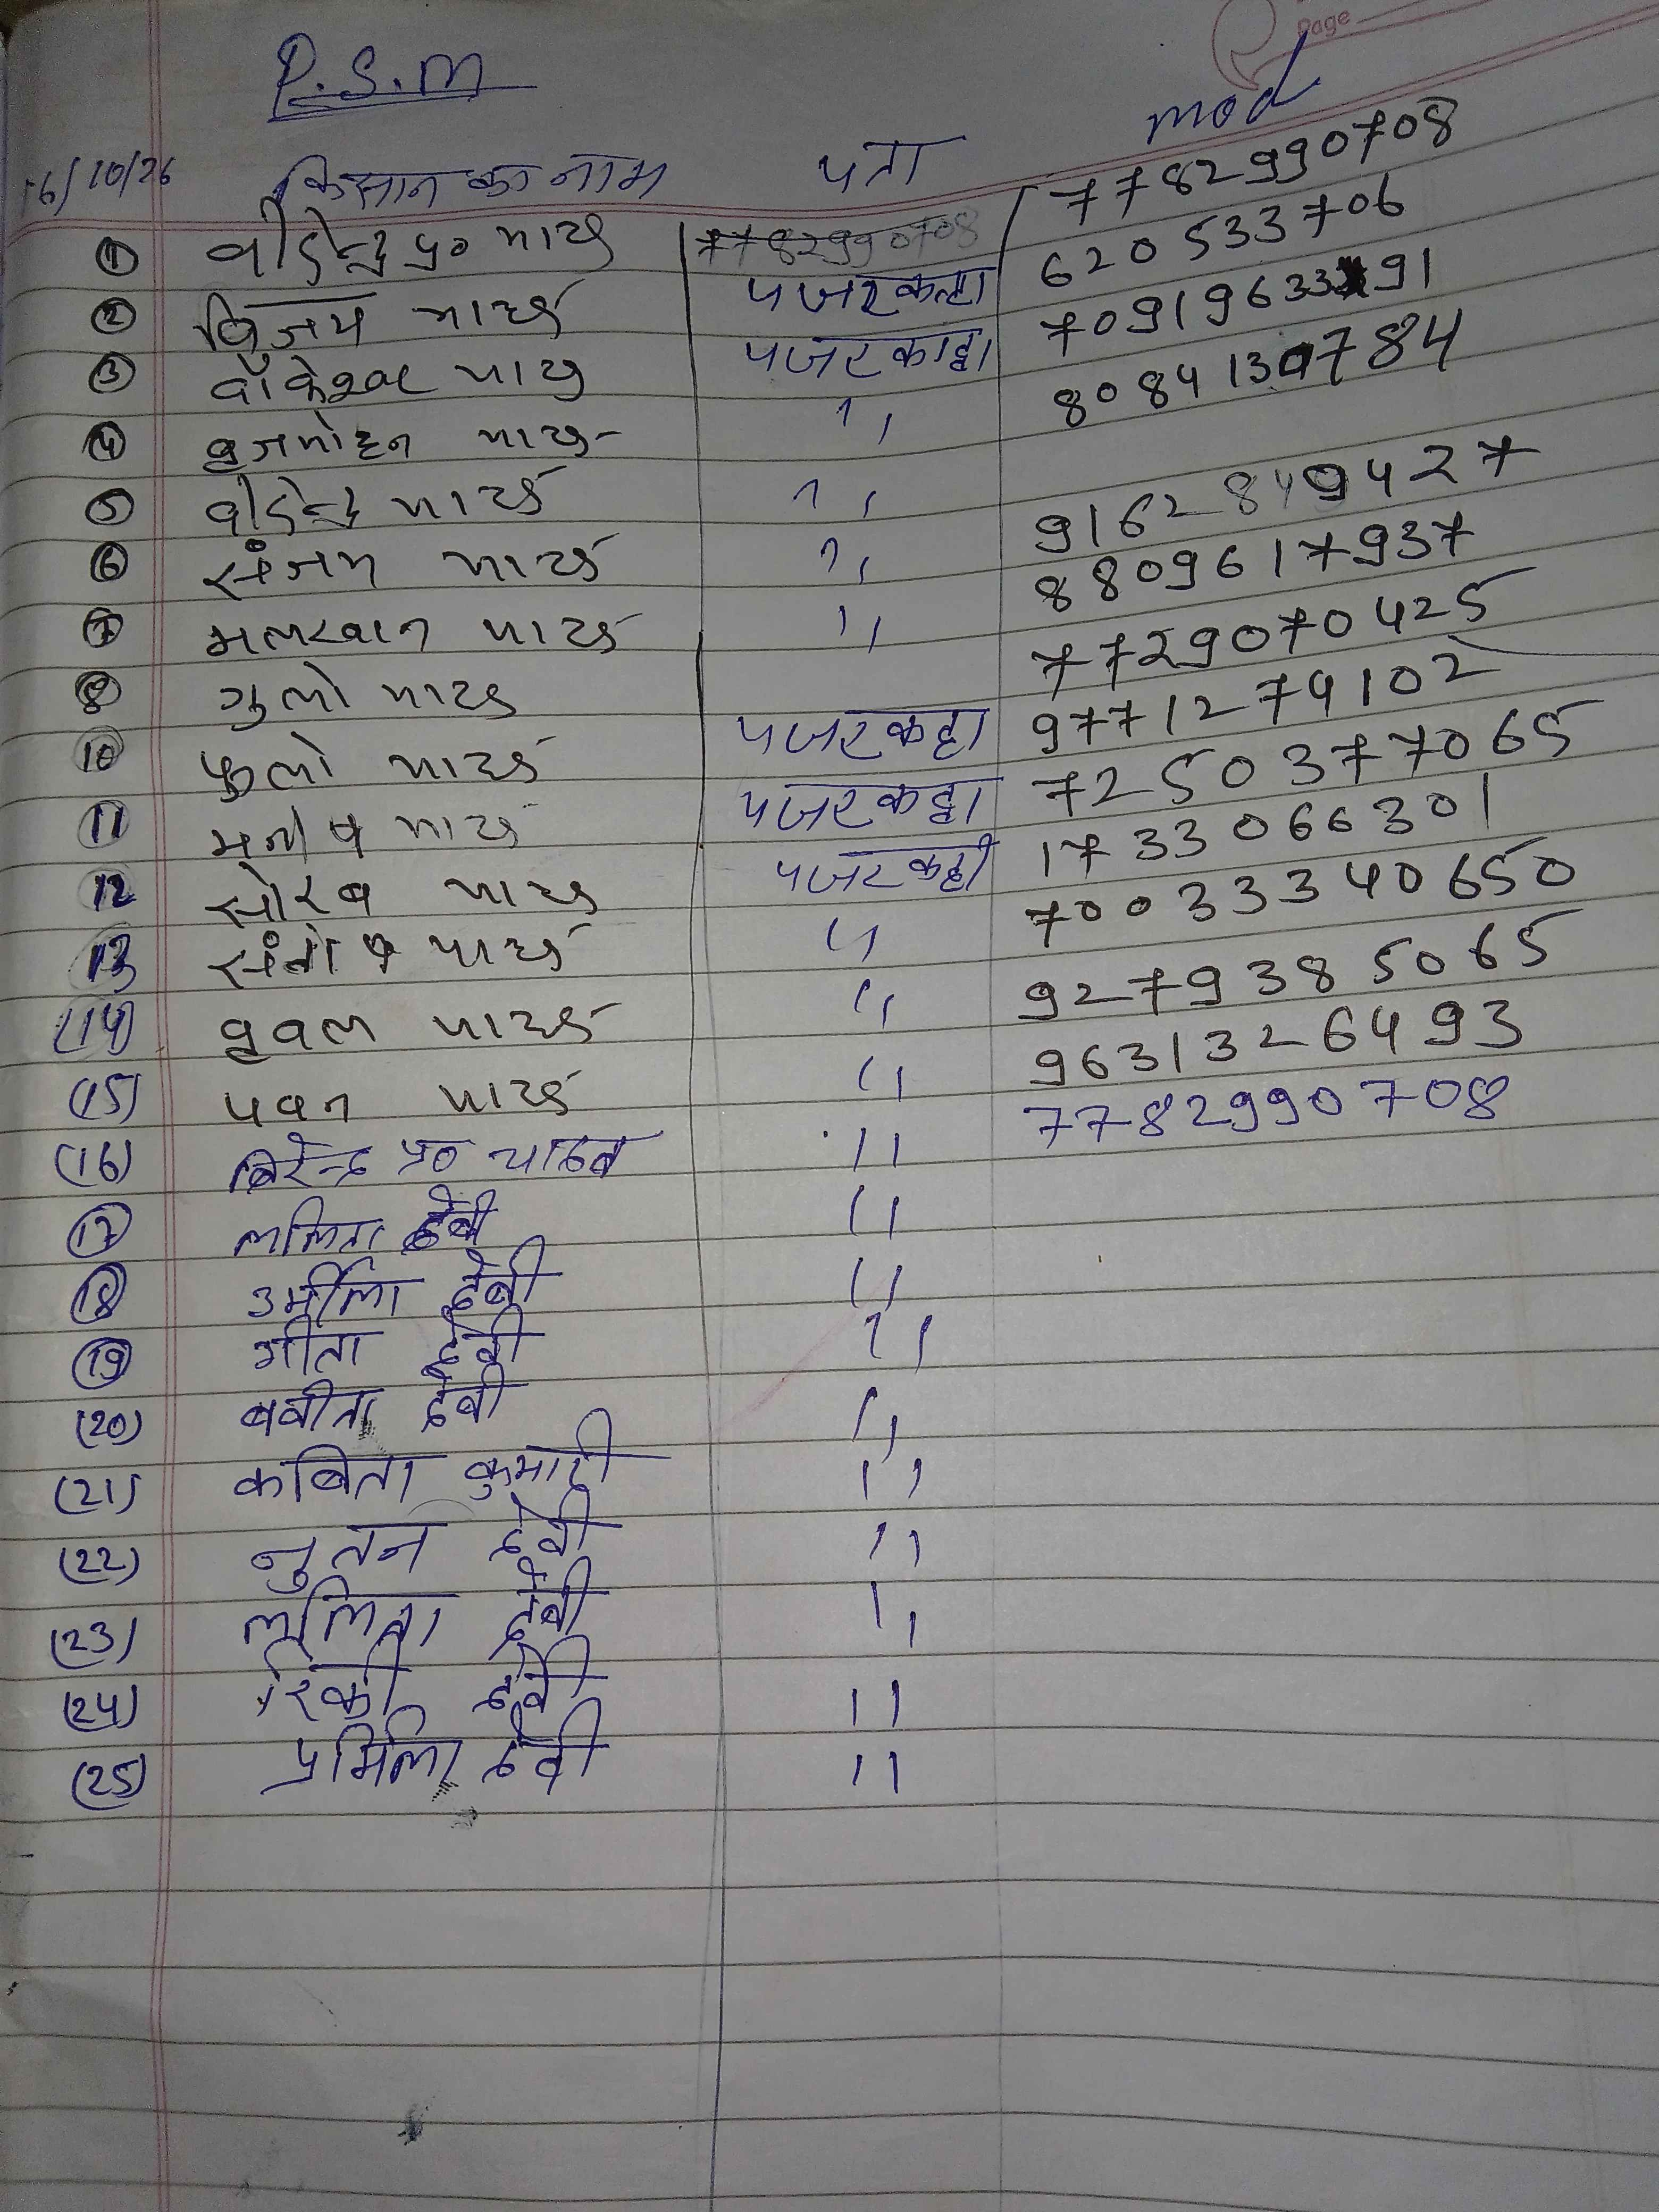 Page
P.S.M
mod
16/10/26 किसान का नाम पता
① वीरेन्द्र प्र० यादव 7782990708 7782990708
② विजय यादव पजरकट्ठा 620533706
③ यादव पजरकाट्ठा 7091963391
④ बृजमोहन यादव ,, 8084130784
⑤ वीरेन्द्र यादव ,,
⑥ संजय यादव ,, 91628499427
⑦ मलखान यादव ,, 8809617937
⑧ गुलो यादव 7729070425
10 फुलो यादव पजरकट्ठा 9771274102
11 मनोष यादव पजरकट्ठा 72503777065
12 सोरव यादव पजरकट्ठा 1733066301
13 संतोष यादव ,, 70033340650
(14) यादव ,, 9279385065
(15) पवन यादव ,, 9631326493
(16) बिरेन्द्र प्र० यादव ,, 7782990708
(17) ललिता देवी ,,
(18) उर्मीला देवी ,,
(19) गीता देवी ,,
(20) बबीता देवी ,,
(21) कबिता कुमारी ,,
(22) नुतन देवी ,,
(23) ललिता देवी ,,
(24) रिंकी देवी ,,
(25) प्रमिला देवी ,,